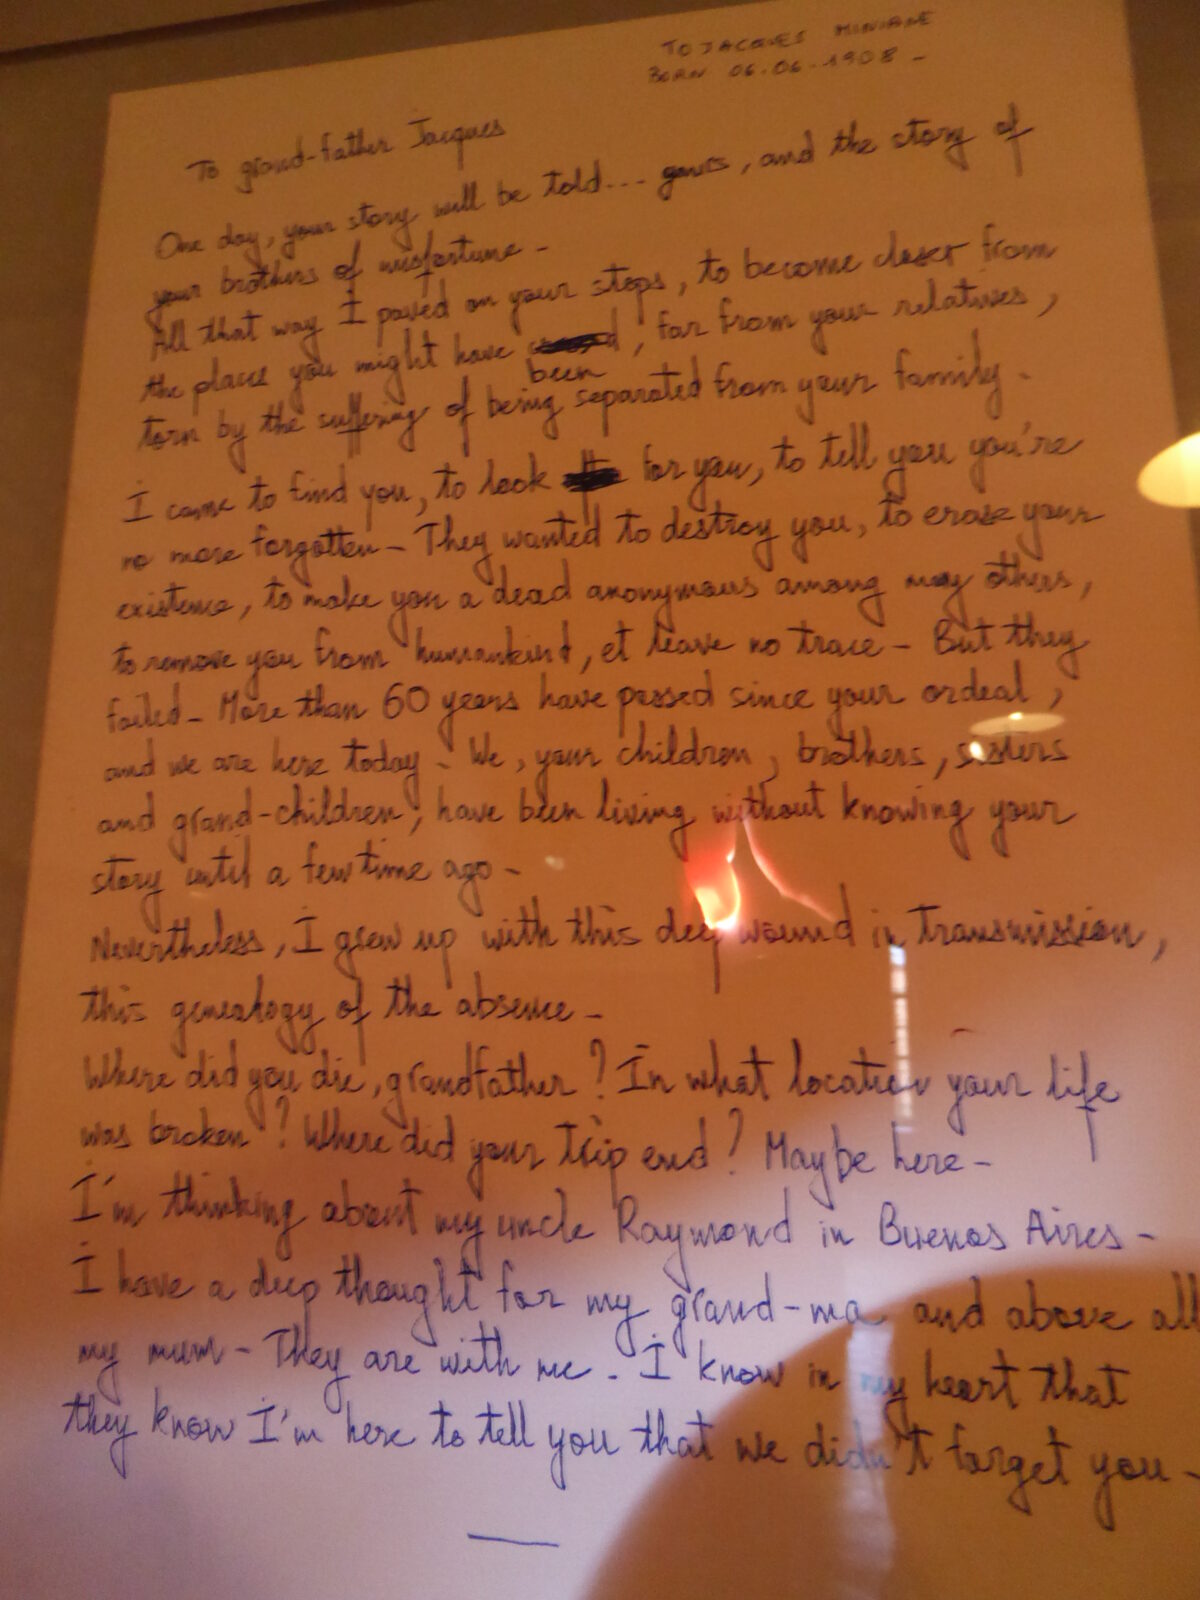 TO JACQUES MINIANE
BORN 06.06.1908 -
To grand-father Jacques
One day, your story will be told... yours, and the story of
your brothers of misfortune -
All that way I paved on your steps, to become closer from
the place you might have been, far from your relatives,
torn by the suffering of being separated from your family.
I came to find you, to look for you, to tell you you're
no more forgotten - They wanted to destroy you, to erase your
existence, to make you a dead anonymous among many others,
to remove you from humankind, et leave no trace - But they
failed - More than 60 years have passed since your ordeal,
and we are here today - We, your children, brothers, sisters
and grand-children, have been living without knowing your
story until a few time ago -
Nevertheless, I grew up with this deep wound in transmission,
this genealogy of the absence -
Where did you die, grandfather? In what location your life
was broken? Where did your trip end? Maybe here -
I'm thinking about my uncle Raymond in Buenos Aires -
I have a deep thought for my grand-ma and above all
my mum - They are with me. I know in my heart that
they know I'm here to tell you that we didn't forget you -